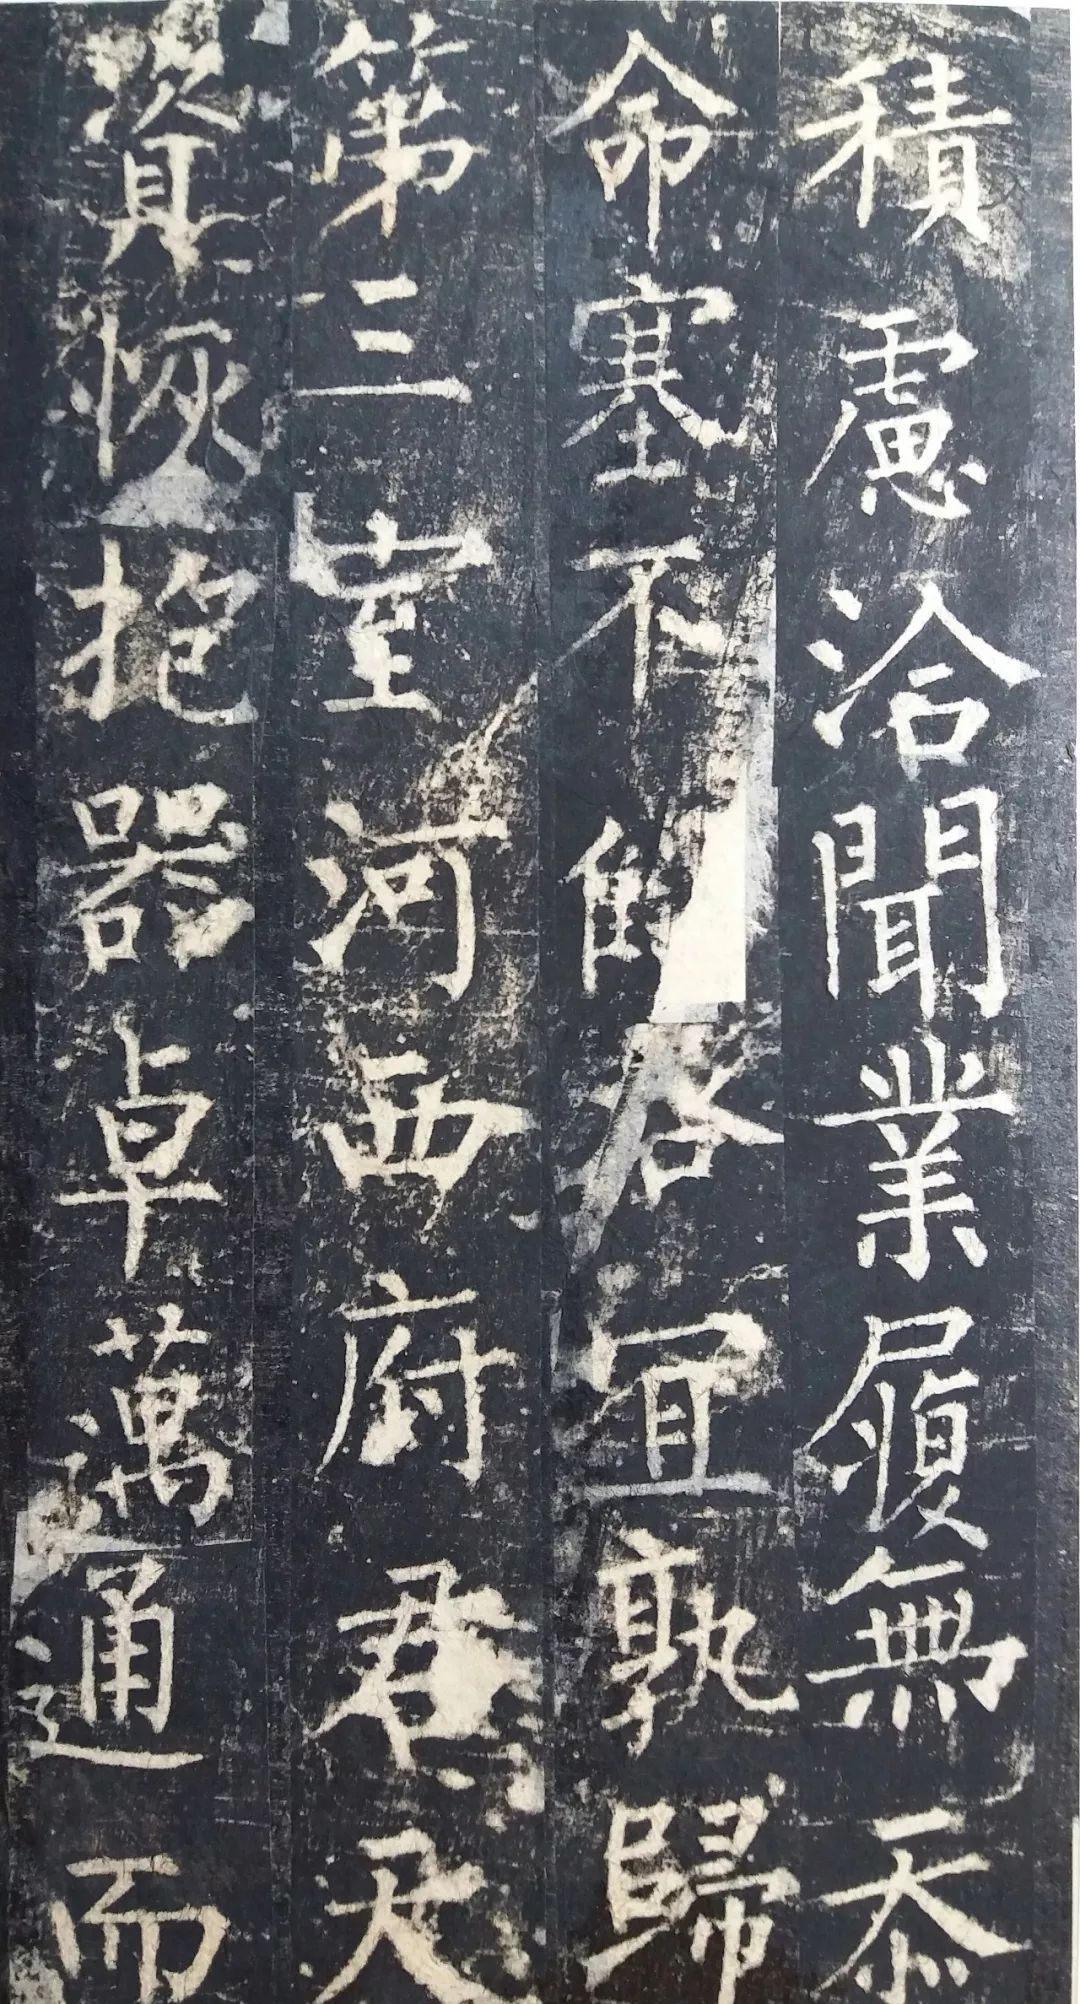 積慮洽聞業履無忝
命塞不咎宜孰歸
第三室河西府君天
資恢抱器卓邁通而